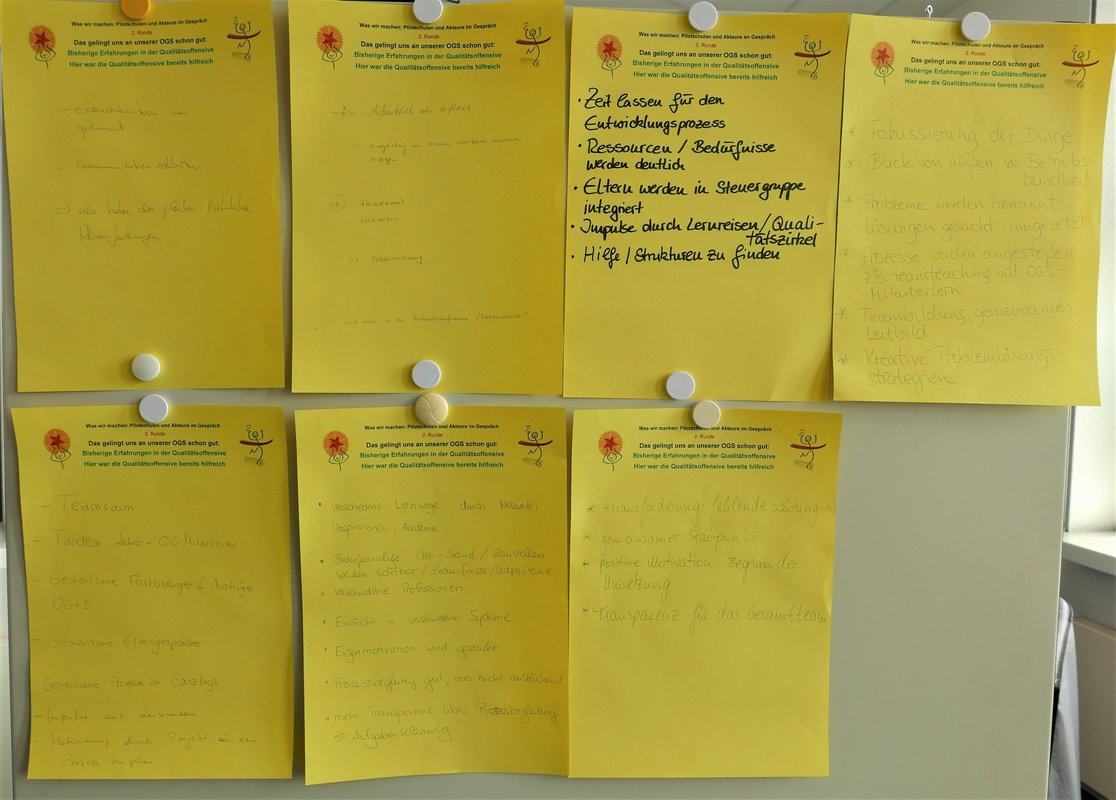 Was wir machen: Pilotschulen und Akteure im Gespräch
2. Runde
Das gelingt uns an unserer OGS schon gut:
Bisherige Erfahrungen in der Qualitätsoffensive
Hier war die Qualitätsoffensive bereits hilfreich
optimiert
- Kommunikation
=> alle haben die gleichen / ähnliche
Herausforderungen
Was wir machen: Pilotschulen und Akteure im Gespräch
2. Runde
Das gelingt uns an unserer OGS schon gut:
Bisherige Erfahrungen in der Qualitätsoffensive
Hier war die Qualitätsoffensive bereits hilfreich
hilfreich
Akademie
Fokussierung
Was wir machen: Pilotschulen und Akteure im Gespräch
2. Runde
Das gelingt uns an unserer OGS schon gut:
Bisherige Erfahrungen in der Qualitätsoffensive
Hier war die Qualitätsoffensive bereits hilfreich
• Zeit lassen für den
Entwicklungsprozess
• Ressourcen / Bedürfnisse
werden deutlich
• Eltern werden in Steuergruppe
integriert
• Impulse durch Lernreisen/Quali-
tätszirkel
• Hilfe / Strukturen zu finden
Was wir machen: Pilotschulen und Akteure im Gespräch
2. Runde
Das gelingt uns an unserer OGS schon gut:
Bisherige Erfahrungen in der Qualitätsoffensive
Hier war die Qualitätsoffensive bereits hilfreich
* Fokussierung der Dinge
* Blick von außen vs. Betriebs-
blindheit
* Probleme werden benannt -
Lösungen gesucht - umgesetzt
* Prozesse werden angestoßen
z.B. teamteaching mit OGS-
Mitarbeitern
* Teambildung, gemeinsames
Leitbild
* Kreative Problemlösungs-
strategien
Was wir machen: Pilotschulen und Akteure im Gespräch
2. Runde
Das gelingt uns an unserer OGS schon gut:
Bisherige Erfahrungen in der Qualitätsoffensive
Hier war die Qualitätsoffensive bereits hilfreich
- Teamraum
- Tandem Lehrer + OG Mitarbeiter
- Gemeinsame Fortbildungen & Ausflüge
OG+S
- Gemeinsame Elterngespräche
- Gemeinsame Projekte im Ganztags
- Impulse aus Lernreisen
durch Projekt in den
Prozess zu gehen
Was wir machen: Pilotschulen und Akteure im Gespräch
2. Runde
Das gelingt uns an unserer OGS schon gut:
Bisherige Erfahrungen in der Qualitätsoffensive
Hier war die Qualitätsoffensive bereits hilfreich
• verschiedene Lernwege durch Netzwerke,
Hospitationen, Akademie
• Bedarfsanalyse / Ist-Stand / Baustellen
werden sichtbar / Bedürfnisse /
• verschiedene Professionen
• Einsicht in verschiedene Systeme
• Eigenmotivation wird gestärkt
• Prozessbegleitung gut, aber nicht ausreichend
• mehr Transparenz über Prozessbegleitung
=> Aufgabenklärung
Was wir machen: Pilotschulen und Akteure im Gespräch
2. Runde
Das gelingt uns an unserer OGS schon gut:
Bisherige Erfahrungen in der Qualitätsoffensive
Hier war die Qualitätsoffensive bereits hilfreich
* Herausforderung: fehlende Leitung(en)
* gemeinsamer Startpunkt
* positive Motivation: Beginn der
Umsetzung
* Transparenz für das Gesamtteam